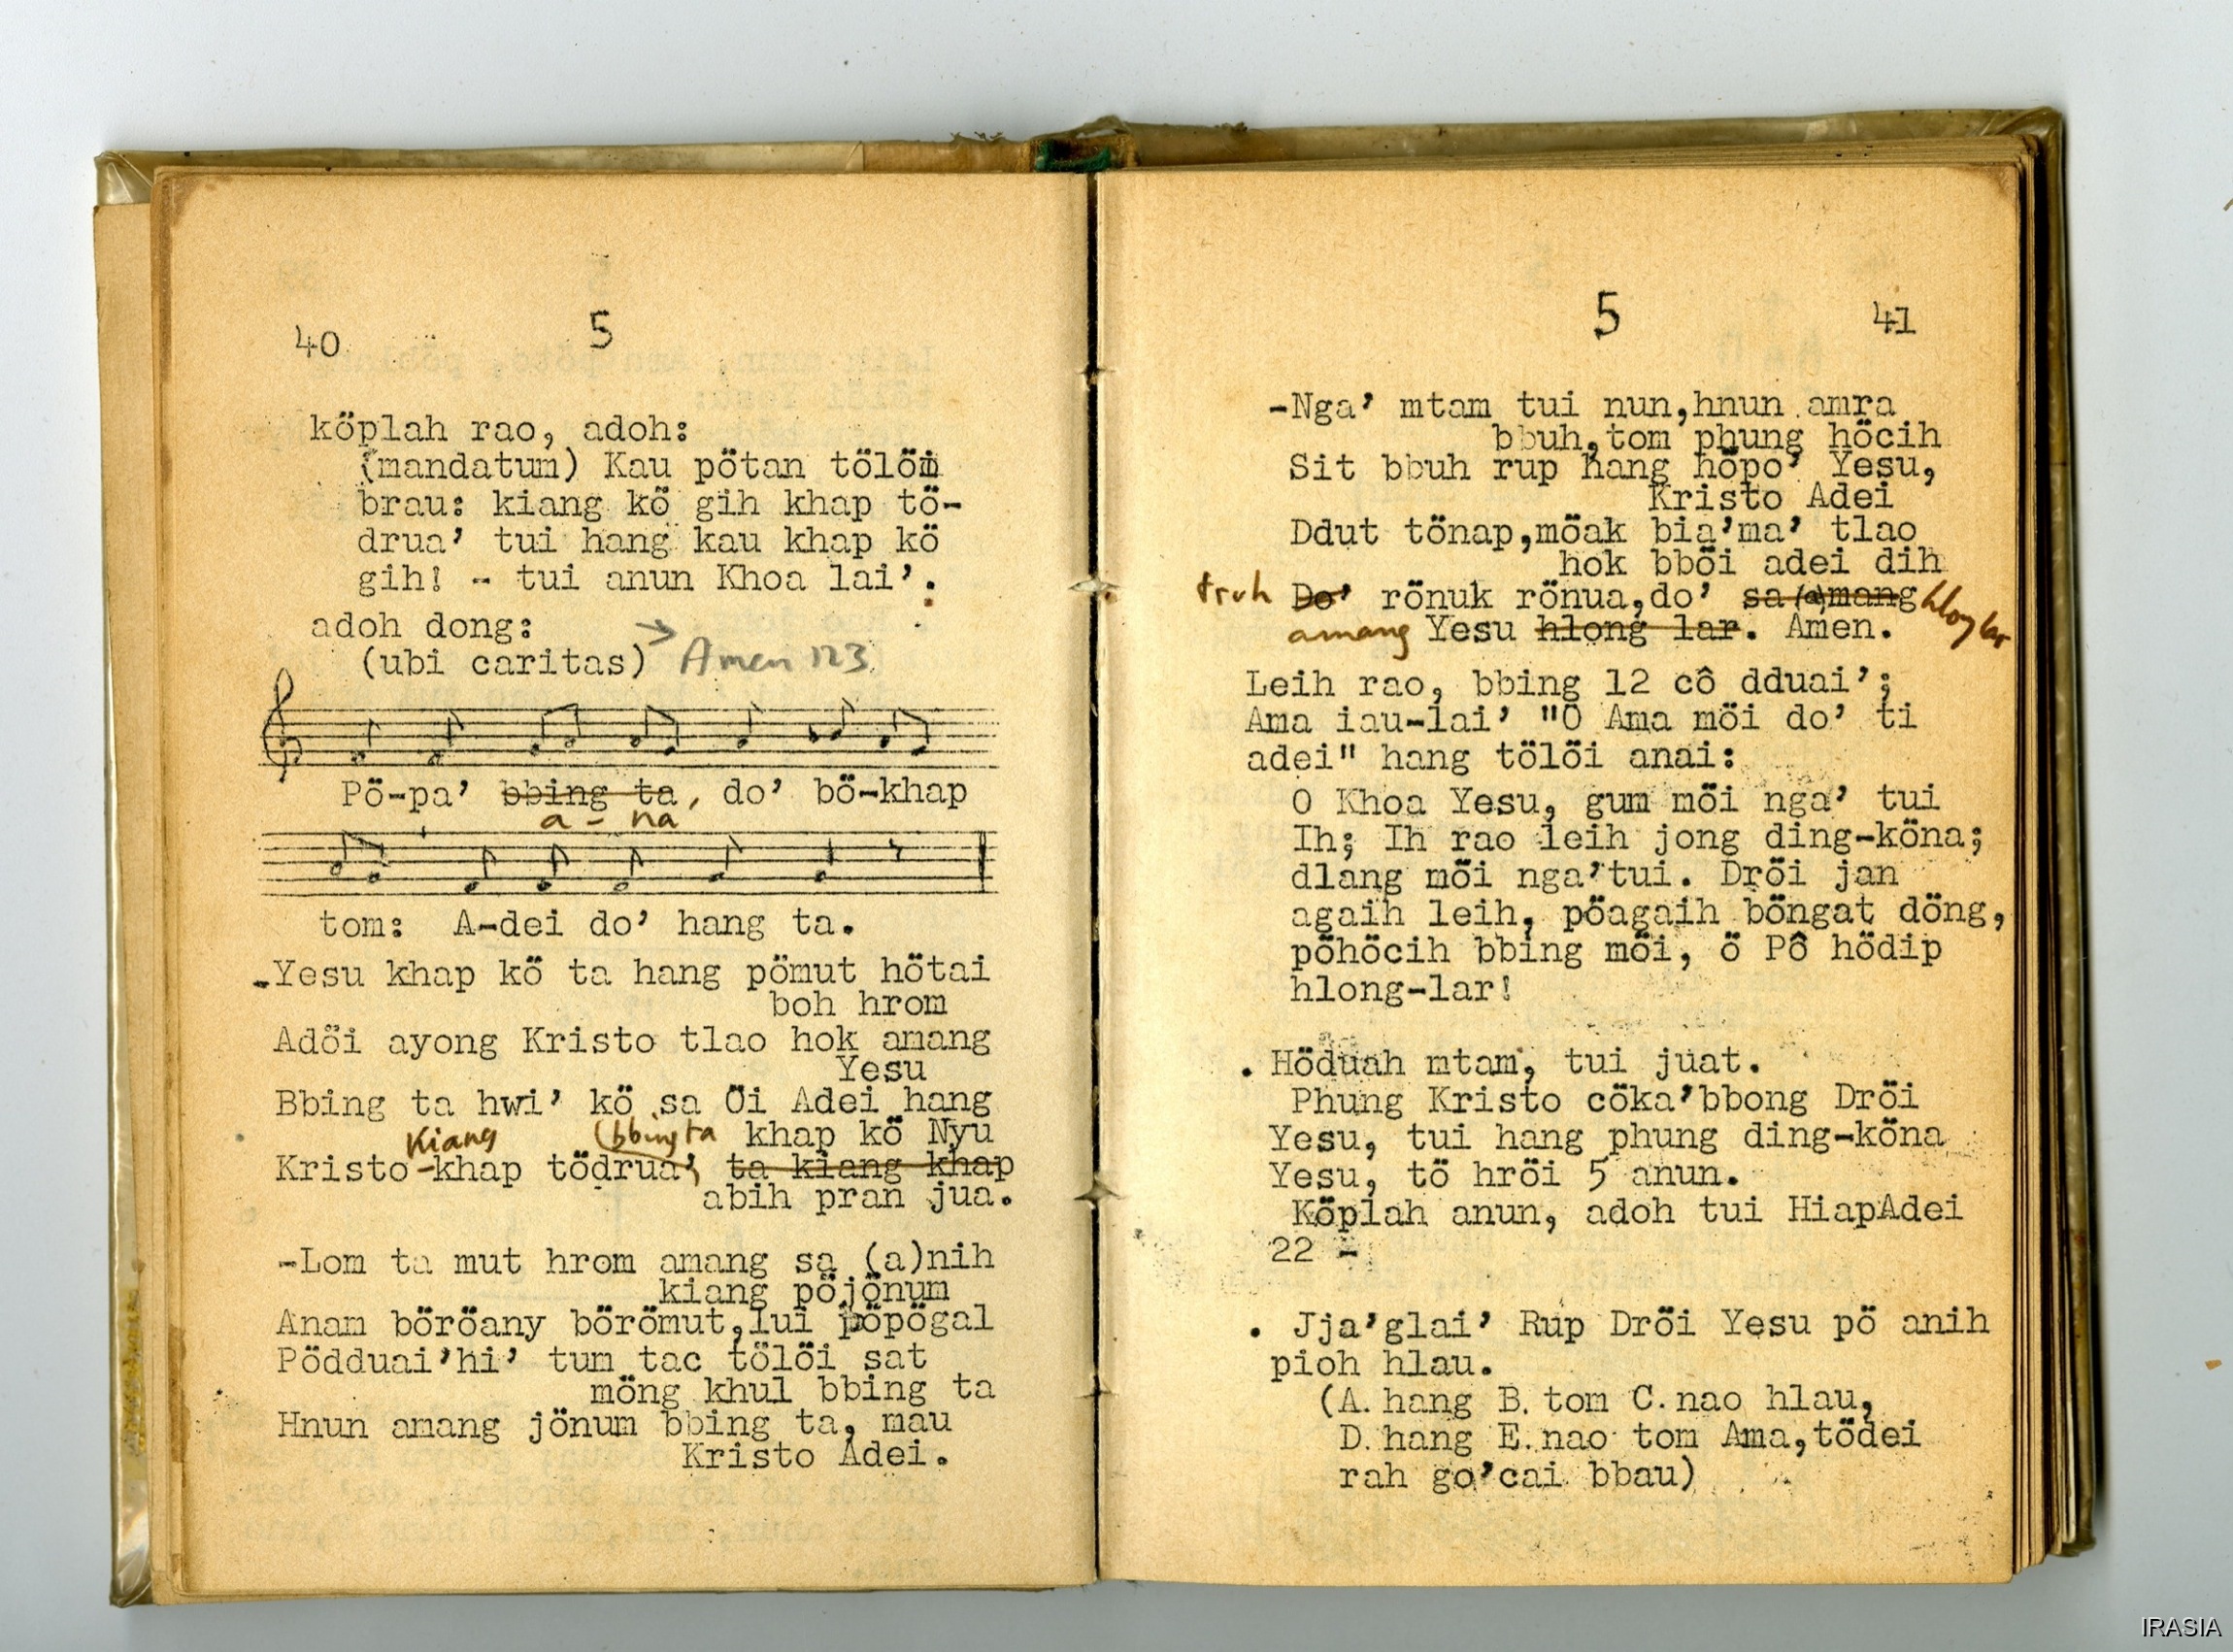 40 5
köplah rao, adoh:
(mandatum) Kau pötan tölöi
brau: kiang kö gih khap tö-
drua’ tui hang kau khap kö
gih! - tui anun Khoa lai’.
adoh dong:
(ubi caritas) → Amen 123
Pö-pa’ bbing ta, do’ bö-khap
a - na
tom: A-dei do’ hang ta.
-Yesu khap kö ta hang pömut hötai
boh hrom
Adöi ayong Kristo tlao hok amang
Yesu
Bbing ta hwi’ kö sa Öi Adei hang
Kiang (bbing ta khap kö Nyu
Kristo-khap tödrua’, ta kiang khap
abih pran jua.
-Lom ta mut hrom amang sa (a)nih
kiang pöjönum
Anam böröany börömut,lui pöpögal
Pödduai’hi’ tum tac tölöi sat
möng khul bbing ta
Hnun amang jönum bbing ta, mau
Kristo Adei.
5 41
-Nga’ mtam tui nun,hnun amra
bbuh,tom phung höcih
Sit bbuh rup hang höpo’ Yesu,
Kristo Adei
Ddut tönap,möak bia’ma’ tlao
hok bböi adei dih
truh Do’ rönuk rönua,do’ sa (a)mang hlong lar
amang Yesu hlong lar. Amen.
Leih rao, bbing 12 cô dduai’;
Ama iau-lai’ "O Ama möi do’ ti
adei" hang tölöi anai:
O Khoa Yesu, gum möi nga’ tui
Ih; Ih rao leih jong ding-köna;
dlang möi nga’tui. Dröi jan
agaih leih, pöagaih böngat döng,
pöhöcih bbing möi, ö Pô hödip
hlong-lar!
. Höduah mtam, tui juat.
Phung Kristo cöka’bbong Dröi
Yesu, tui hang phung ding-köna
Yesu, tö hröi 5 anun.
Köplah anun, adoh tui HiapAdei
22 -
. Jja’glai’ Rup Dröi Yesu pö anih
pioh hlau.
(A. hang B. tom C. nao hlau,
D. hang E. nao tom Ama,tödei
rah go’cai bbau)
IRASIA